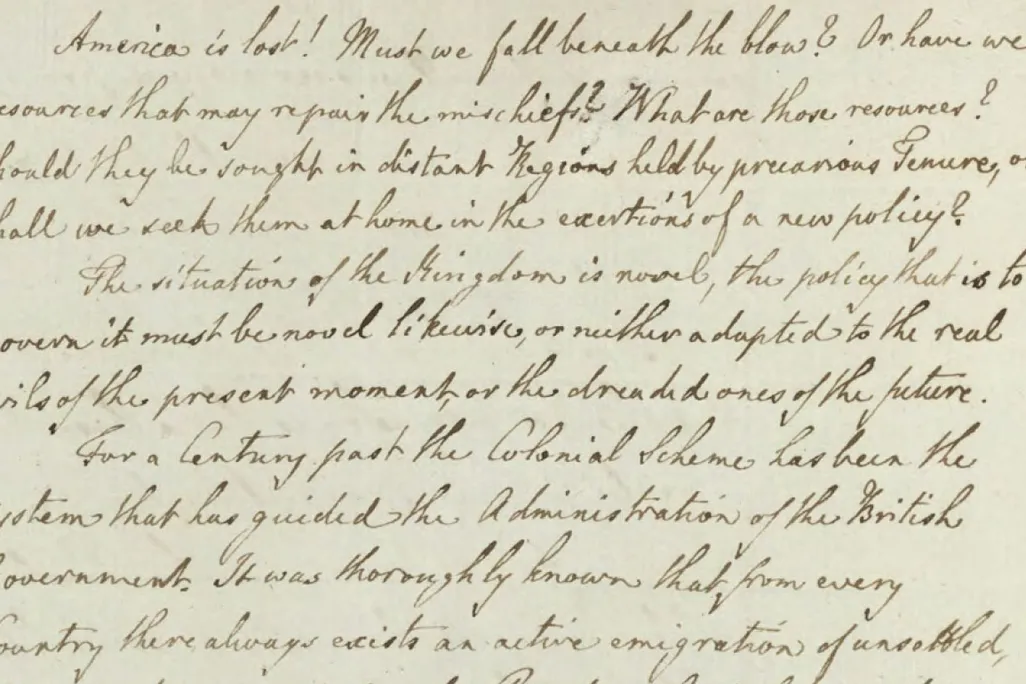 America is lost! Must we fall beneath the blow? Or have we
esources that may repair the mischiefs? What are those resources?
hould they be sought in distant Regions held by precarious Tenure, o
hall we seek them at home in the exertions of a new policy?
The situation of the Kingdom is novel, the policy that is to
overn it must be novel likewise, or neither adapted to the real
vils of the present moment, or the dreaded ones of the future.
For a Century past the Colonial Scheme has been the
ystem that has guided the Administration of the British
overnment. It was thoroughly known that from every
ountry there always exists an active emigration of unsettled,